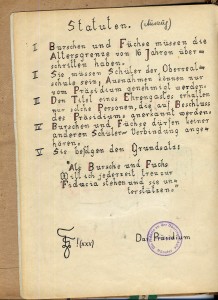 Statuten. (Auszug)
I Burschen und Füchse müssen die
Altersgrenze von 16 Jahren über=
schritten haben.
II Sie müssen Schüler der Oberreal=
schule sein, Ausnahmen können nur
vom Präsidium genehmigt werden.
III Den Titel eines Ehrengastes erhalten
nur solche Personen, die auf Beschluss
des Präsidiums anerkannt werden.
IV Burschen und Füchse dürfen keiner
anderen Schüler-Verbindung ange=
hören.
V Sie bejahen den Grundsatz
"Als Bursche und Fuchs
Will ich jederzeit treu zur
Fiducia stehen und sie un=
terstützen."
! (xxx)
Das Präsidium